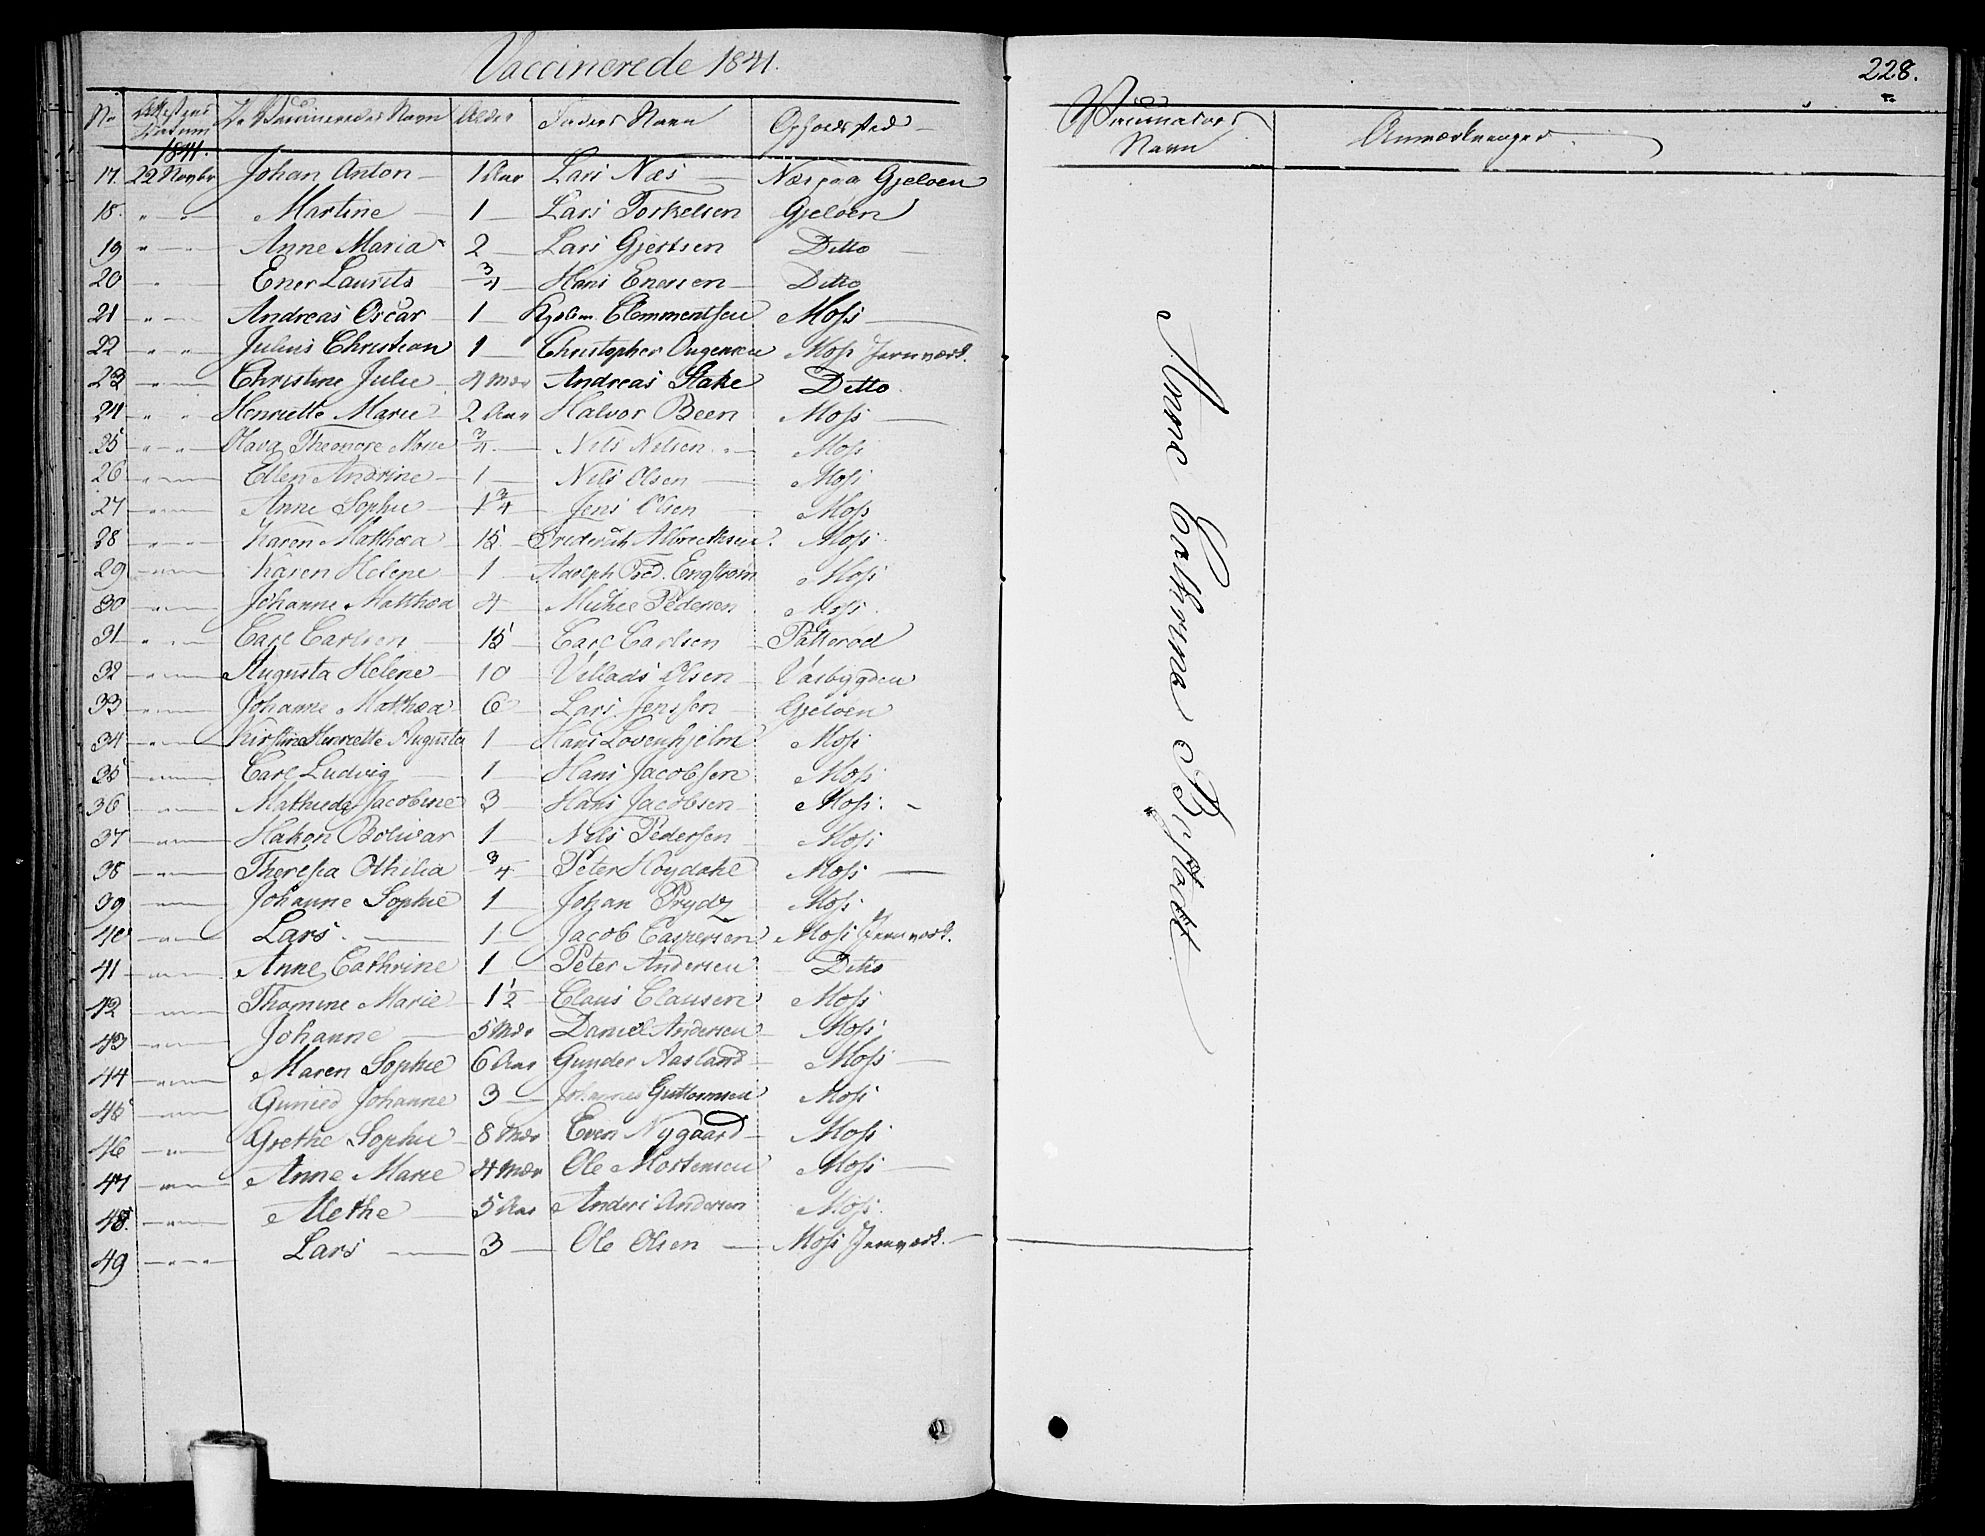 Vaccinerede 1841.
No Attestens Datum De Vaccineredes Navn Alder Faders Navn Opholdssted
1841.
17. 22 Novbr Johan Anton 1 Aar Lars Næs Næs paa Gjeløen
18. " " Martine 1 Lars Torkelsen Gjeløen
19 " " Anne Maria 2 Lars Gjertsen Ditto
20 " Ener Laurits 3/4 Hans Enersen Ditto
21 " " Andreas Oscar 1 Clemmentsen Moss
22 " " Julius Christian 1 Christopher Moss Jernværk.
23 " " Christine Julie 4 Mdr Andreas Stake Ditto.
24 " " Henriette Marie 2 Aar Halvor Been Moss
25 " " Theonore Marie 3/4 Nils Nilsen Moss
26 " " Ellen Andrine 1 Nils Olsen Moss
27 " " Anne Sophie 1 3/4 Jens Olsen Moss
28 " " Karen Mathea 15 Frederich Albrecktsen Moss.
29 " " Karen Helene 1 Adolph Fred. Engstrøm Moss
30 " " Johanne Matthea 4 Michel Pedersen Moss.
31 " " Carl Carlsen 15 Carl Carlsen Patterød
32 " " Augusta Helene 10 Villads Olsen Vasbygden
33 " " Johanne Mathea 6 Lars Jenssen Gjeløen
34 " " Kirstine Henriette Augusta 1 Hans Lovenhjelm Moss
35 " " Carl Ludvig 1 Hans Jacobsen Moss
36 " " Mathilde Jacobine 3 Hans Jacobsen Moss.
37 " " Hakon Bolivar 1 Nils Pedersen Moss
38 " " Theresia Othilia 3/4 Peter Høydahl Moss
39 " " Johanne Sophie 1 Johan Prydz Moss
40 " " Lars. 1 Jacob Caspersen Moss Jernværk.
41 " " Anne Cathrine 1 Peter Andersen Ditto
42 " " Thomine Marie 1 1/2 Claus Clausen Moss
43 " " Johanne 5 Mdr Daniel Andersen Moss
44 " " Maren Sophie 6 Aar Gunder Aasland Moss
45 " " Gunild Johanne 3 Johannes Guttormsen Moss
46 " " Grethe Sophie 8 Mdr Even Nygaard Moss
47 " " Anne Marie 4 Mdr Ole Mortensen Moss
48. " " Methe 5 Aar Anders Andersen Moss.
49 " " Lars 3 Ole Olsen Moss Jernværk.
228.
Vaccinatores Navn Anmærkninger.
Anne Cathrine Bestadt